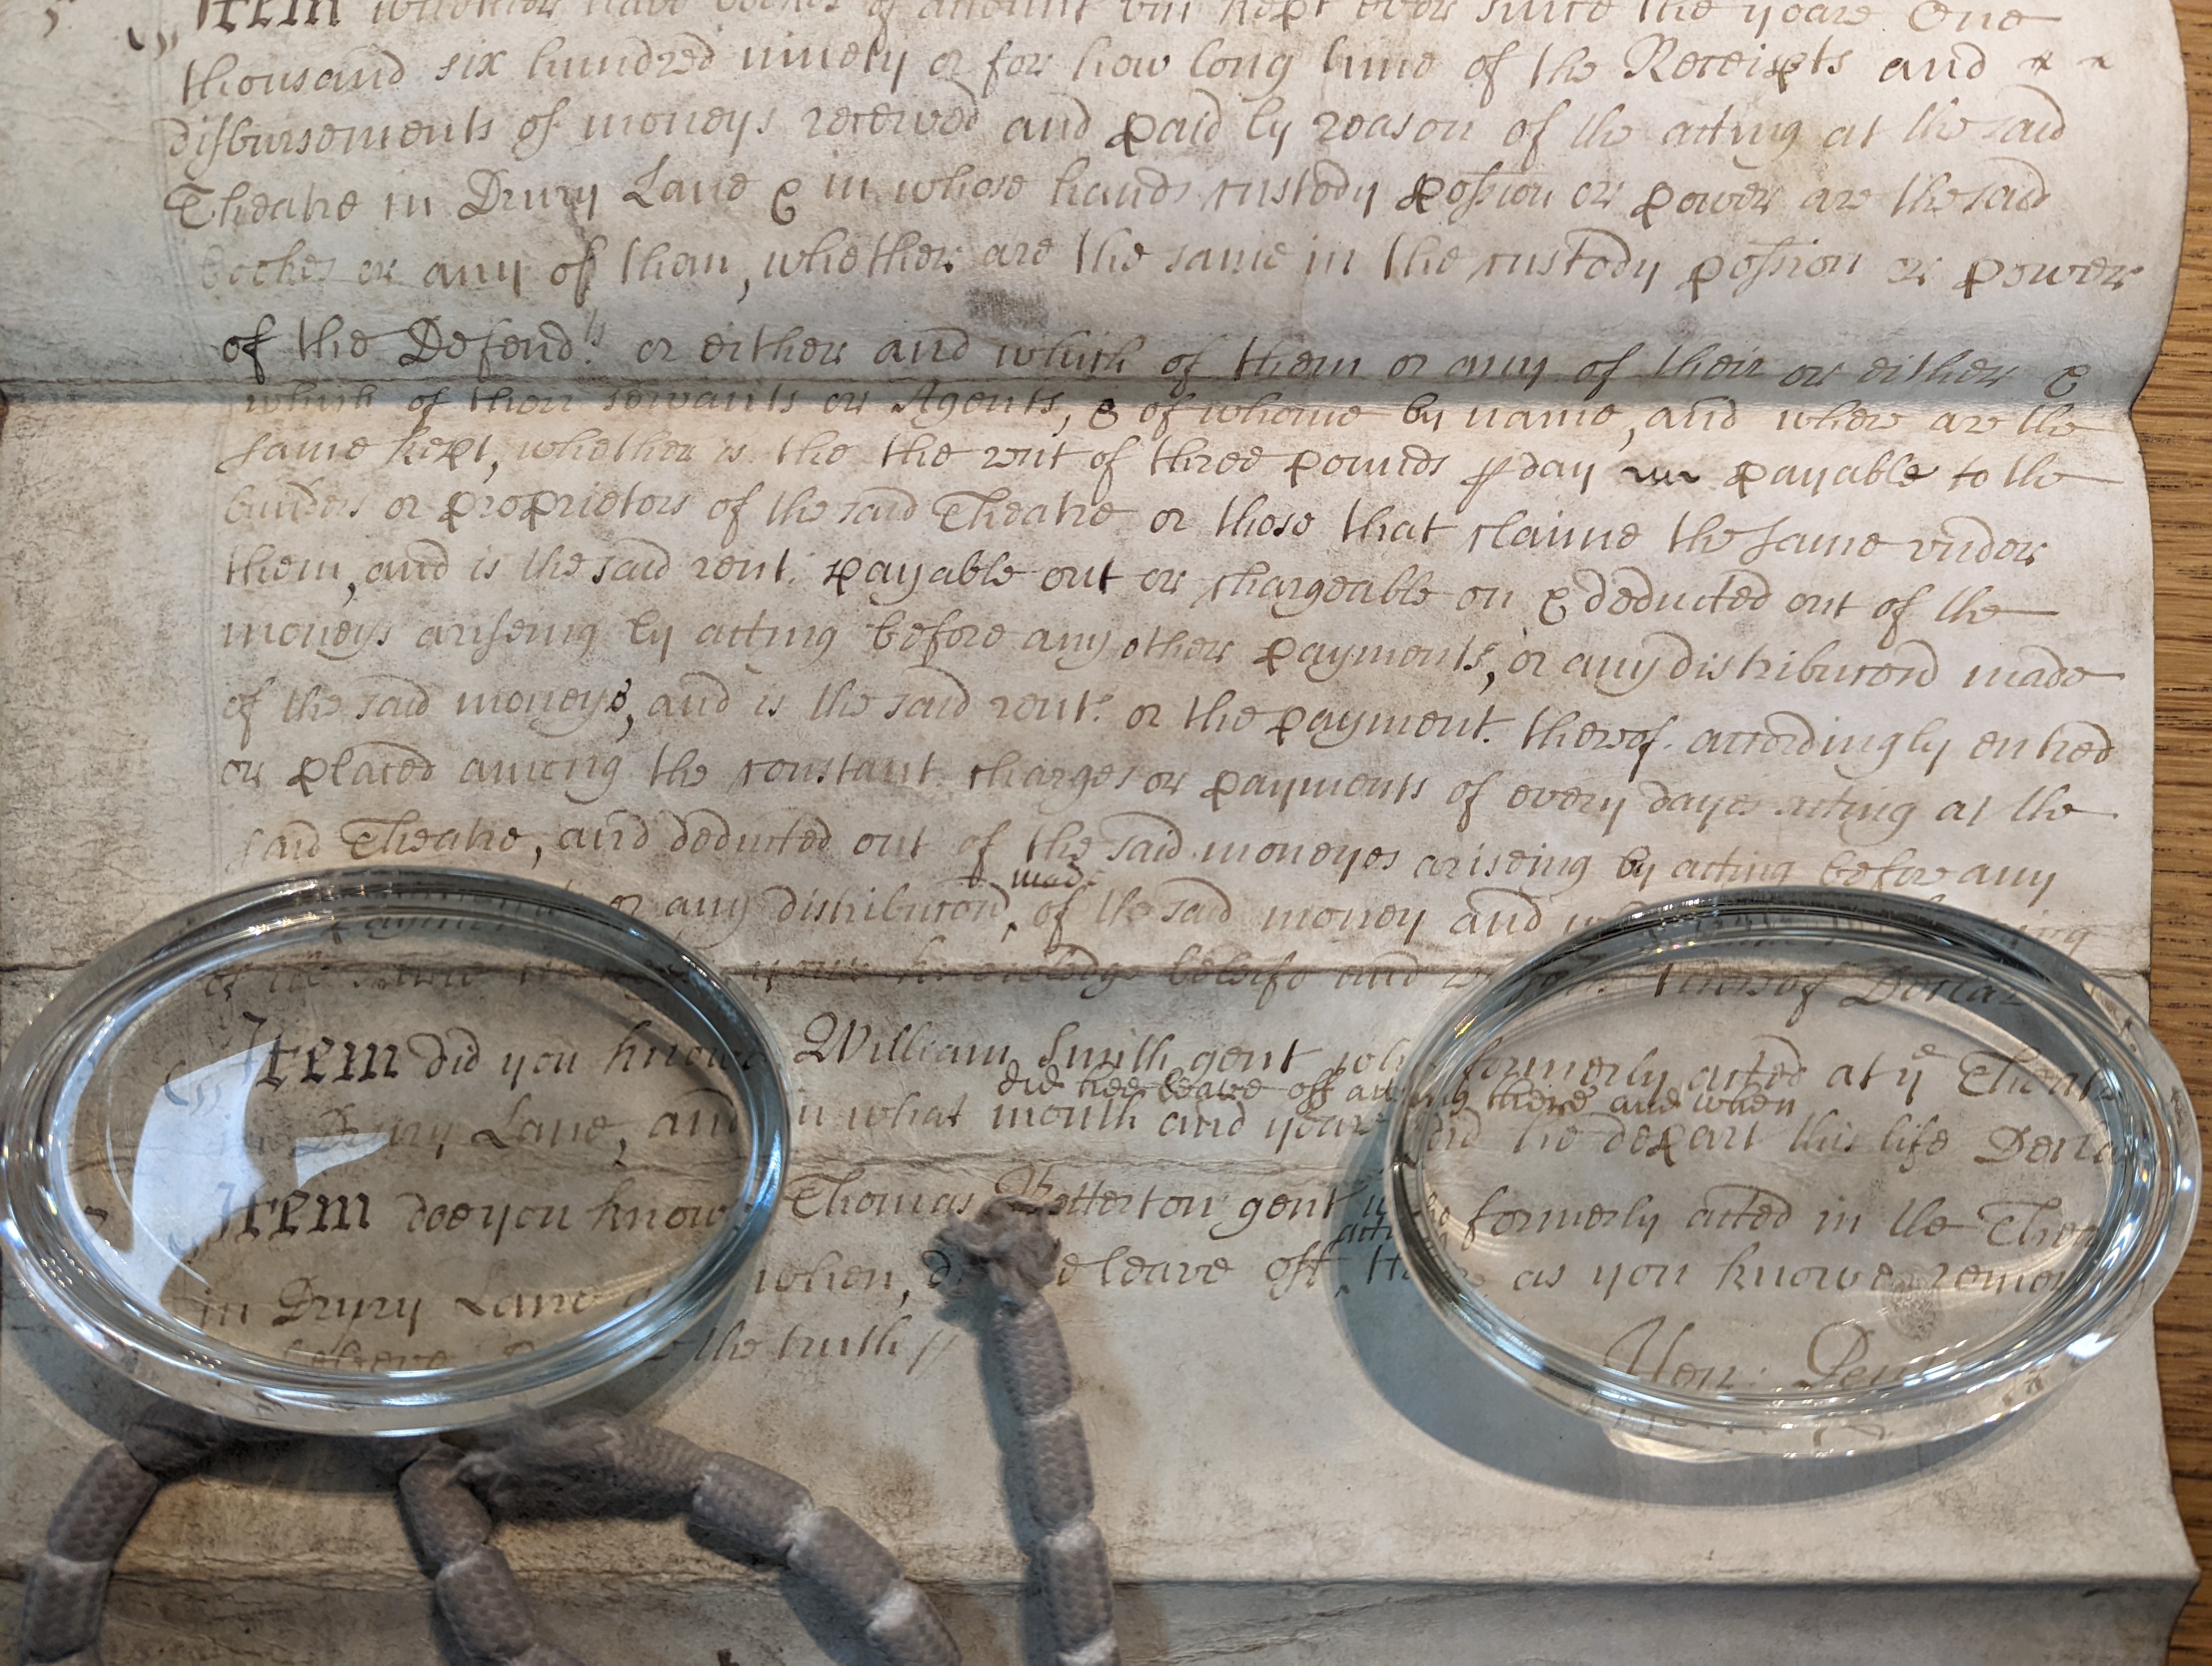 Item whether have bookes of account bin kept ever since the yeare One
thousand six hundred ninety or for how long time of the Receipts and
disbursements of moneys received and paid by reason of the acting at the said
Theatre in Drury Lane & in whose hands custody possion or power are the said
bookes or any of them, whether are the same in the custody possion or power
of the Defend.ts or either and which of them or any of their or either &
which of their servants or Agents, & of whome by name, and where are the
same kept, whether is the the rent of three pounds p day payable to the
builders or proprietors of the said Theatre or those that claime the same vnder
them, and is the said rent. payable out or chargeable on & deducted out of the
moneys ariseing by acting before any other payments, or any distribucon made
of the said moneys, and is the said rent. or the payment. thereof. accordingly entred
or placed among the constant. charges or payments of every dayes acting at the
said Theatre, and deducted out of the said moneyes ariseing by acting before any
made
or any distribucon, of the said money and
your knowledge beleife and thereof Declar
Item did you knowe William Smith gent who formerly acted at ye Theatre
did hee leave off acting there and when
in Drury Lane, and in what month and yeare did he depart this life Decla
Item doe you know Thomas Betterton gent who formerly acted in the Thea
acting
in Drury Lane when, did he leave off, as you knowe
beleive the truth //